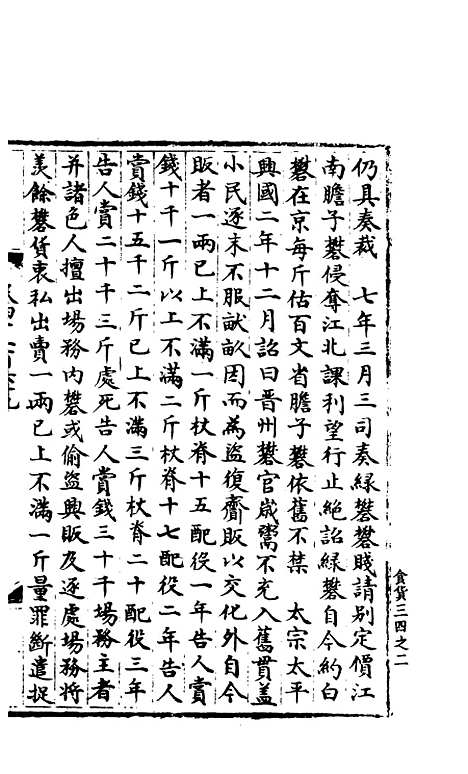 仍具奏裁　七年三月三司奏緑礬礬賤請别定價江
南膽子礬侵奪江北課利望行止絶詔緑礬自今約白
礬在京每斤估百文省膽子礬依舊不禁　太宗太平
興國二年十二月詔曰晋州礬官歲鬻不充入舊貫蓋
小民逐末不服畎畝因而為盗復齎販以交化外自今
販者一兩已上不滿一斤杖脊十五配役一年告人賞
錢十千一斤以上不滿二斤杖脊十七配役二年告人
賞錢十五千二斤已上不滿三斤杖脊二十配役三年
告人賞二十千三斤處死告人賞錢三十千場務主者
并諸色人擅出場務内礬或偷盗興販及逐處場務將
羡餘礬貨衷私出賣一兩已上不滿一斤量罪斷遣捉
食貨三四之二